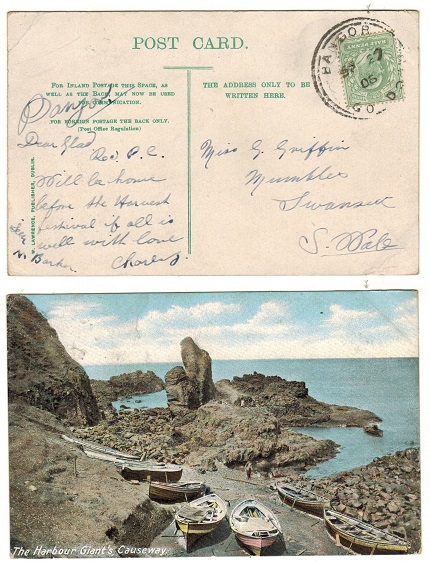 POST CARD.
FOR INLAND POSTAGE THIS SPACE, AS
WELL AS THE BACK, MAY NOW BE USED
FOR COMMUNICATION.
FOR FOREIGN POSTAGE THE BACK ONLY.
(Post Office Regulation)
THE ADDRESS ONLY TO BE
WRITTEN HERE.
BANGOR
06
CO. DO
W. LAWRENCE, PUBLISHER, DUBLIN.
Bangor
Dear Glad
Rec. P.C.
Will be home
before the Harvest
festival if all is
well with love
Charley
N. Barker
Miss G. Griffin
Mumbles
Swansea
S. Wales
The Harbour Giant's Causeway.